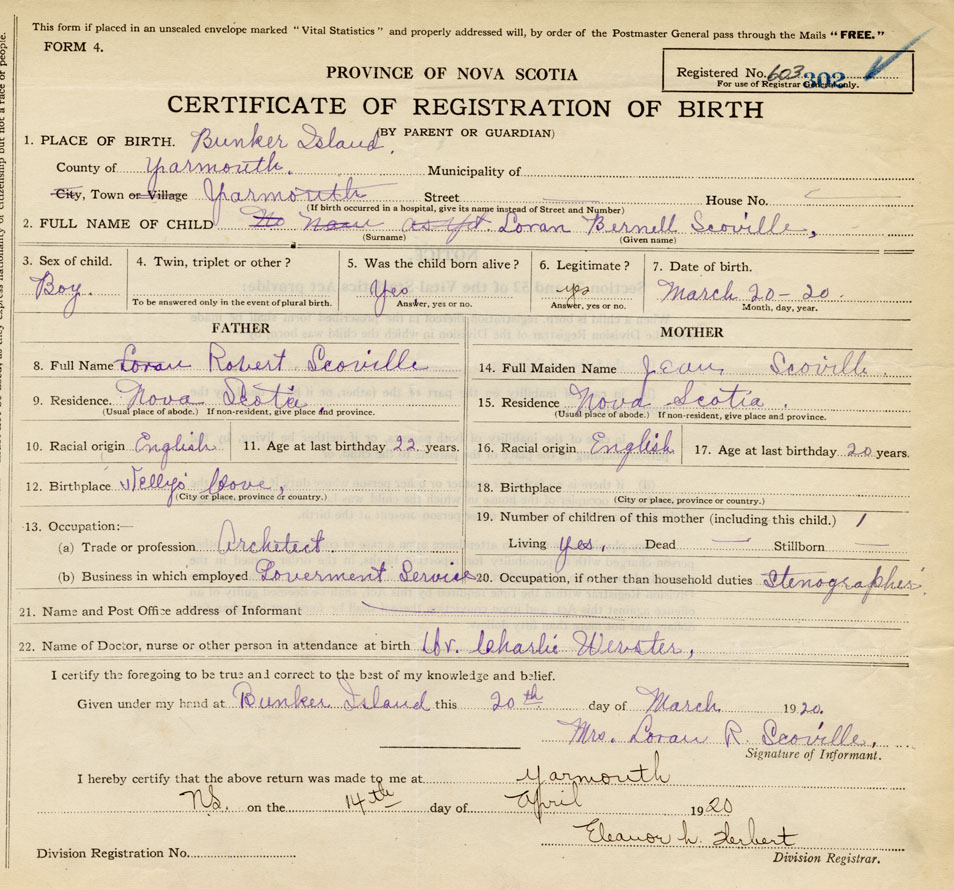 This form if placed in an unsealed envelope marked "Vital Statistics" and properly addressed will, by order of the Postmaster General pass through the Mails "FREE."
FORM 4.
Registered No. 603 302
For use of Registrar General only.
PROVINCE OF NOVA SCOTIA
CERTIFICATE OF REGISTRATION OF BIRTH
(BY PARENT OR GUARDIAN)
1. PLACE OF BIRTH. Bunker Island.
County of Yarmouth. Municipality of
City, Town or Village Yarmouth Street House No.
(If birth occurred in a hospital, give its name instead of Street and Number)
2. FULL NAME OF CHILD No Name as Yet. Loran Bernell Scoville,
(Surname) (Given name)
3. Sex of child. 4. Twin, triplet or other? 5. Was the child born alive? 6. Legitimate? 7. Date of birth.
Boy. Yes yes March 20-20.
To be answered only in the event of plural birth. Answer, yes or no. Answer, yes or no. Month, day, year.
FATHER MOTHER
8. Full Name Loran Robert Scoville 14. Full Maiden Name Jean Scoville.
9. Residence. Nova Scotia 15. Residence Nova Scotia.
(Usual place of abode.) If non-resident, give place and province. (Usual place of abode.) If non-resident, give place and province.
10. Racial origin English 11. Age at last birthday 22 years. 16. Racial origin English 17. Age at last birthday 20 years.
12. Birthplace Cove, 18. Birthplace
(City or place, province or country.) (City or place, province or country.)
13. Occupation:— 19. Number of children of this mother (including this child.) 1
(a) Trade or profession Architect. Living yes. Dead — Stillborn —
(b) Business in which employed Goverment Service 20. Occupation, if other than household duties Stenographer.
21. Name and Post Office address of Informant
22. Name of Doctor, nurse or other person in attendance at birth Dr. Charlie Webster,
I certify the foregoing to be true and correct to the best of my knowledge and belief.
Given under my hand at Bunker Island this 20th day of March 1920.
Mrs. Loran R. Scoville,
Signature of Informant.
I hereby certify that the above return was made to me at Yarmouth
N.S. on the 14th day of April 1920
Eleanor L. Herbert
Division Registration No. Division Registrar.